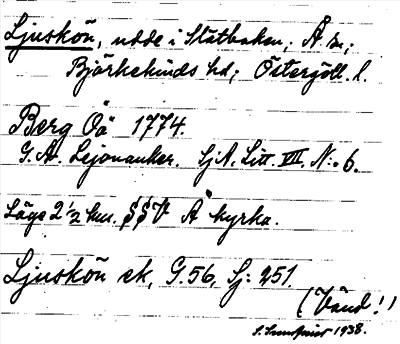 Ljuskön, udde i Slätbaken; Å sn;
Björkekinds hd; Östergötl. l.
Berg Öä 1774.
G. Ad. Lejonanker. SjA. Litt. VII. N:o 6.
Läge 2 1/2 km. SSV Å kyrka.
Ljuskön ek, G.56, Sj: 251.
(Vänd!)
1938.